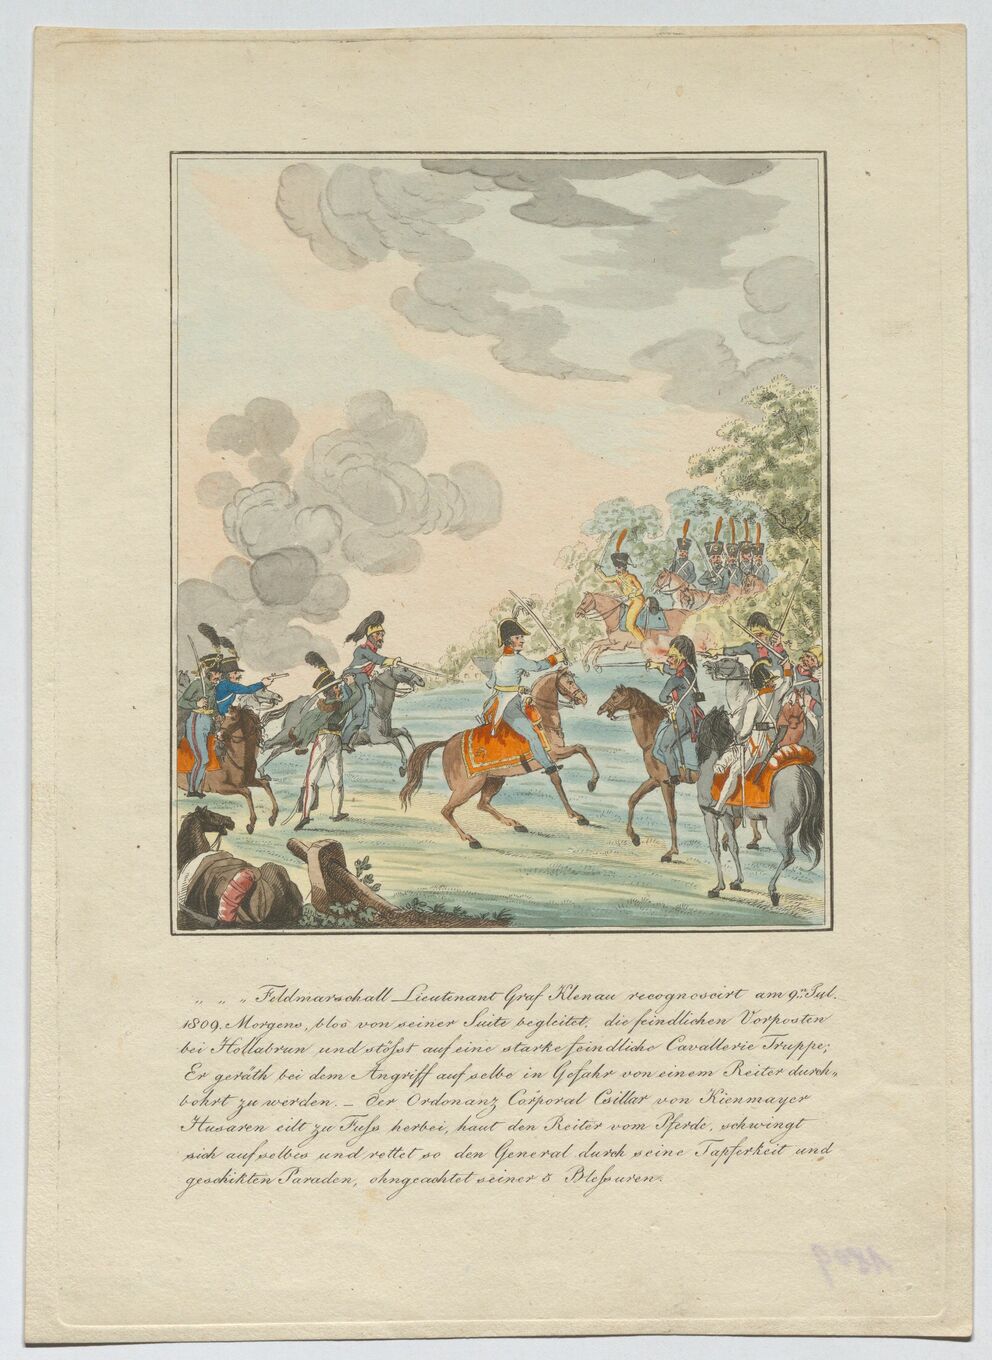 „ „ „ Feldmarschall Lieutenant Graf Klenau recognoscirt am 9ⁿ. Jul.
1809. Morgens, blos von seiner Suite begleitet, die feindlichen Vorposten
bei Hollabrun und stößt auf eine starke feindliche Cavallerie Truppe;
Er geräth bei dem Angriff auf selbe in Gefahr von einem Reiter durch=
bohrt zu werden. – Der Ordonanz Corporal Csillar von Kienmayer
Husaren eilt zu Fuß herbei, haut den Reiter vom Pferde, schwingt
sich auf selbes und rettet so den General durch seine Tapferkeit und
geschikten Paraden, ohngeachtet seiner 8 Bleßuren.